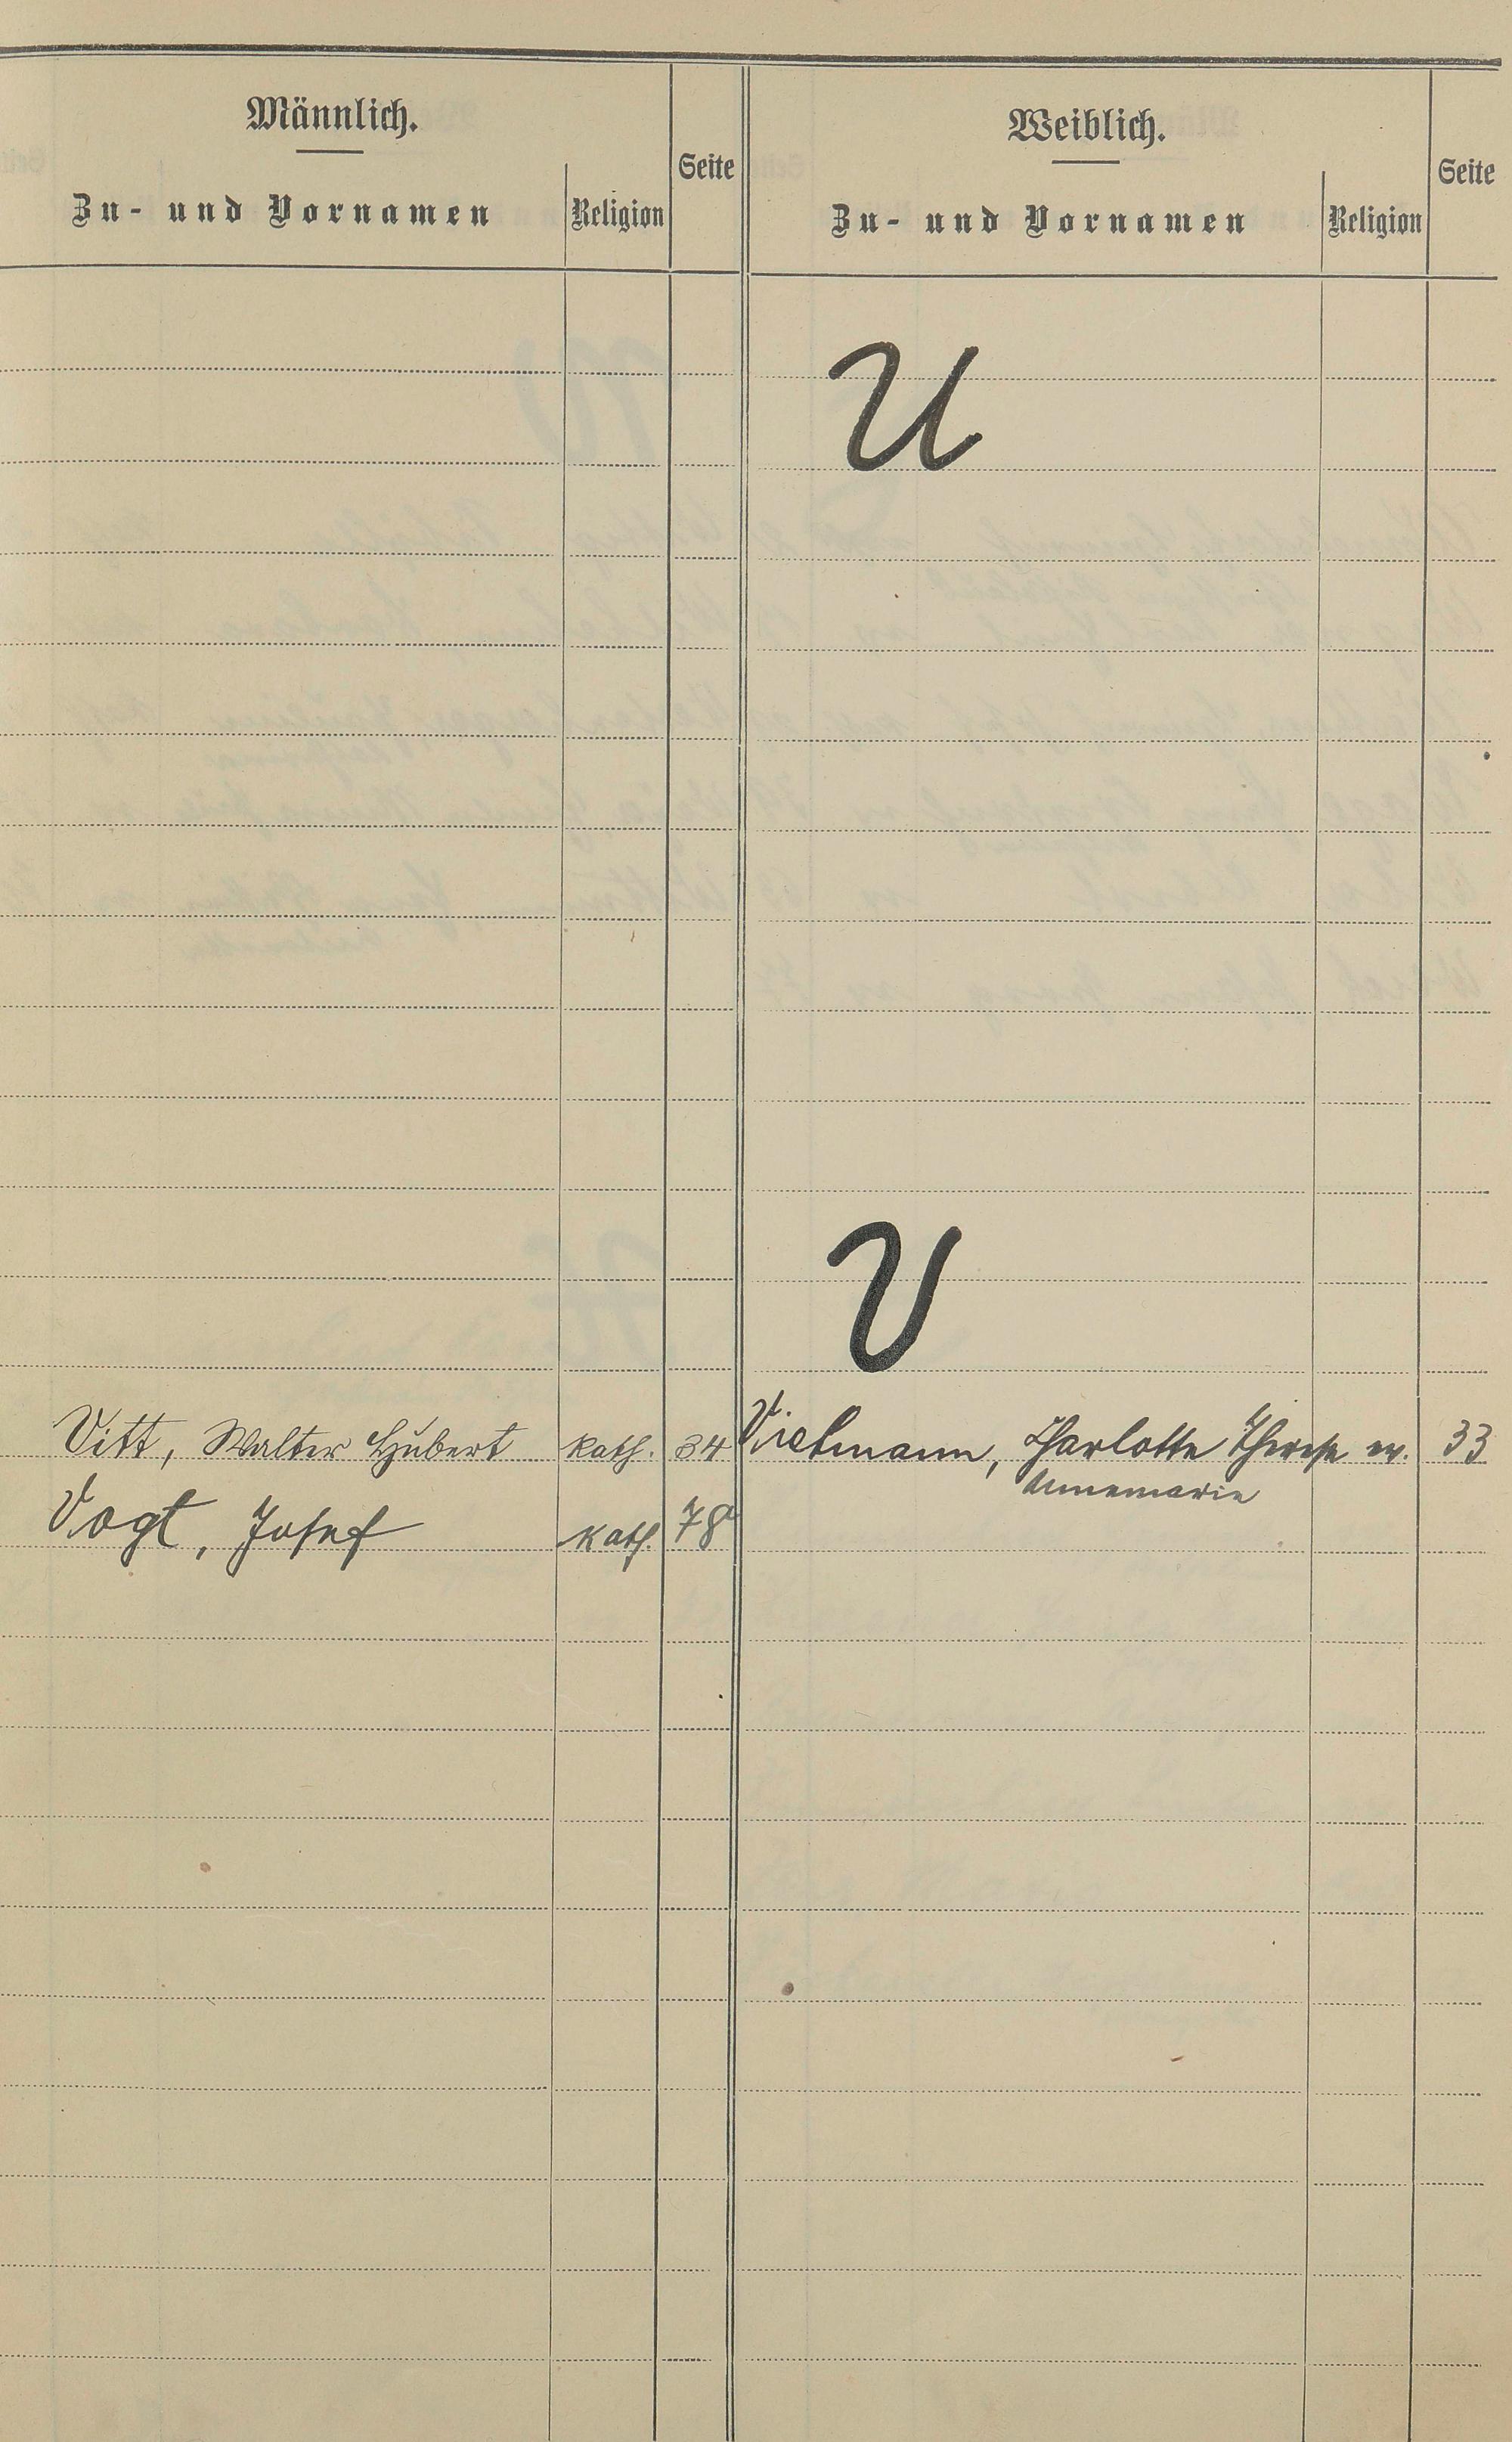 Männlich.
Zu- und Vornamen
Religion
Seite
Weiblich.
Zu- und Vornamen
Religion
Seite
U
V
Vitt, Walter Hubert kath. 34
Vogt, Josef kath. 78a
Vietmann, Charlotte Therese ev. 33
Annemarie